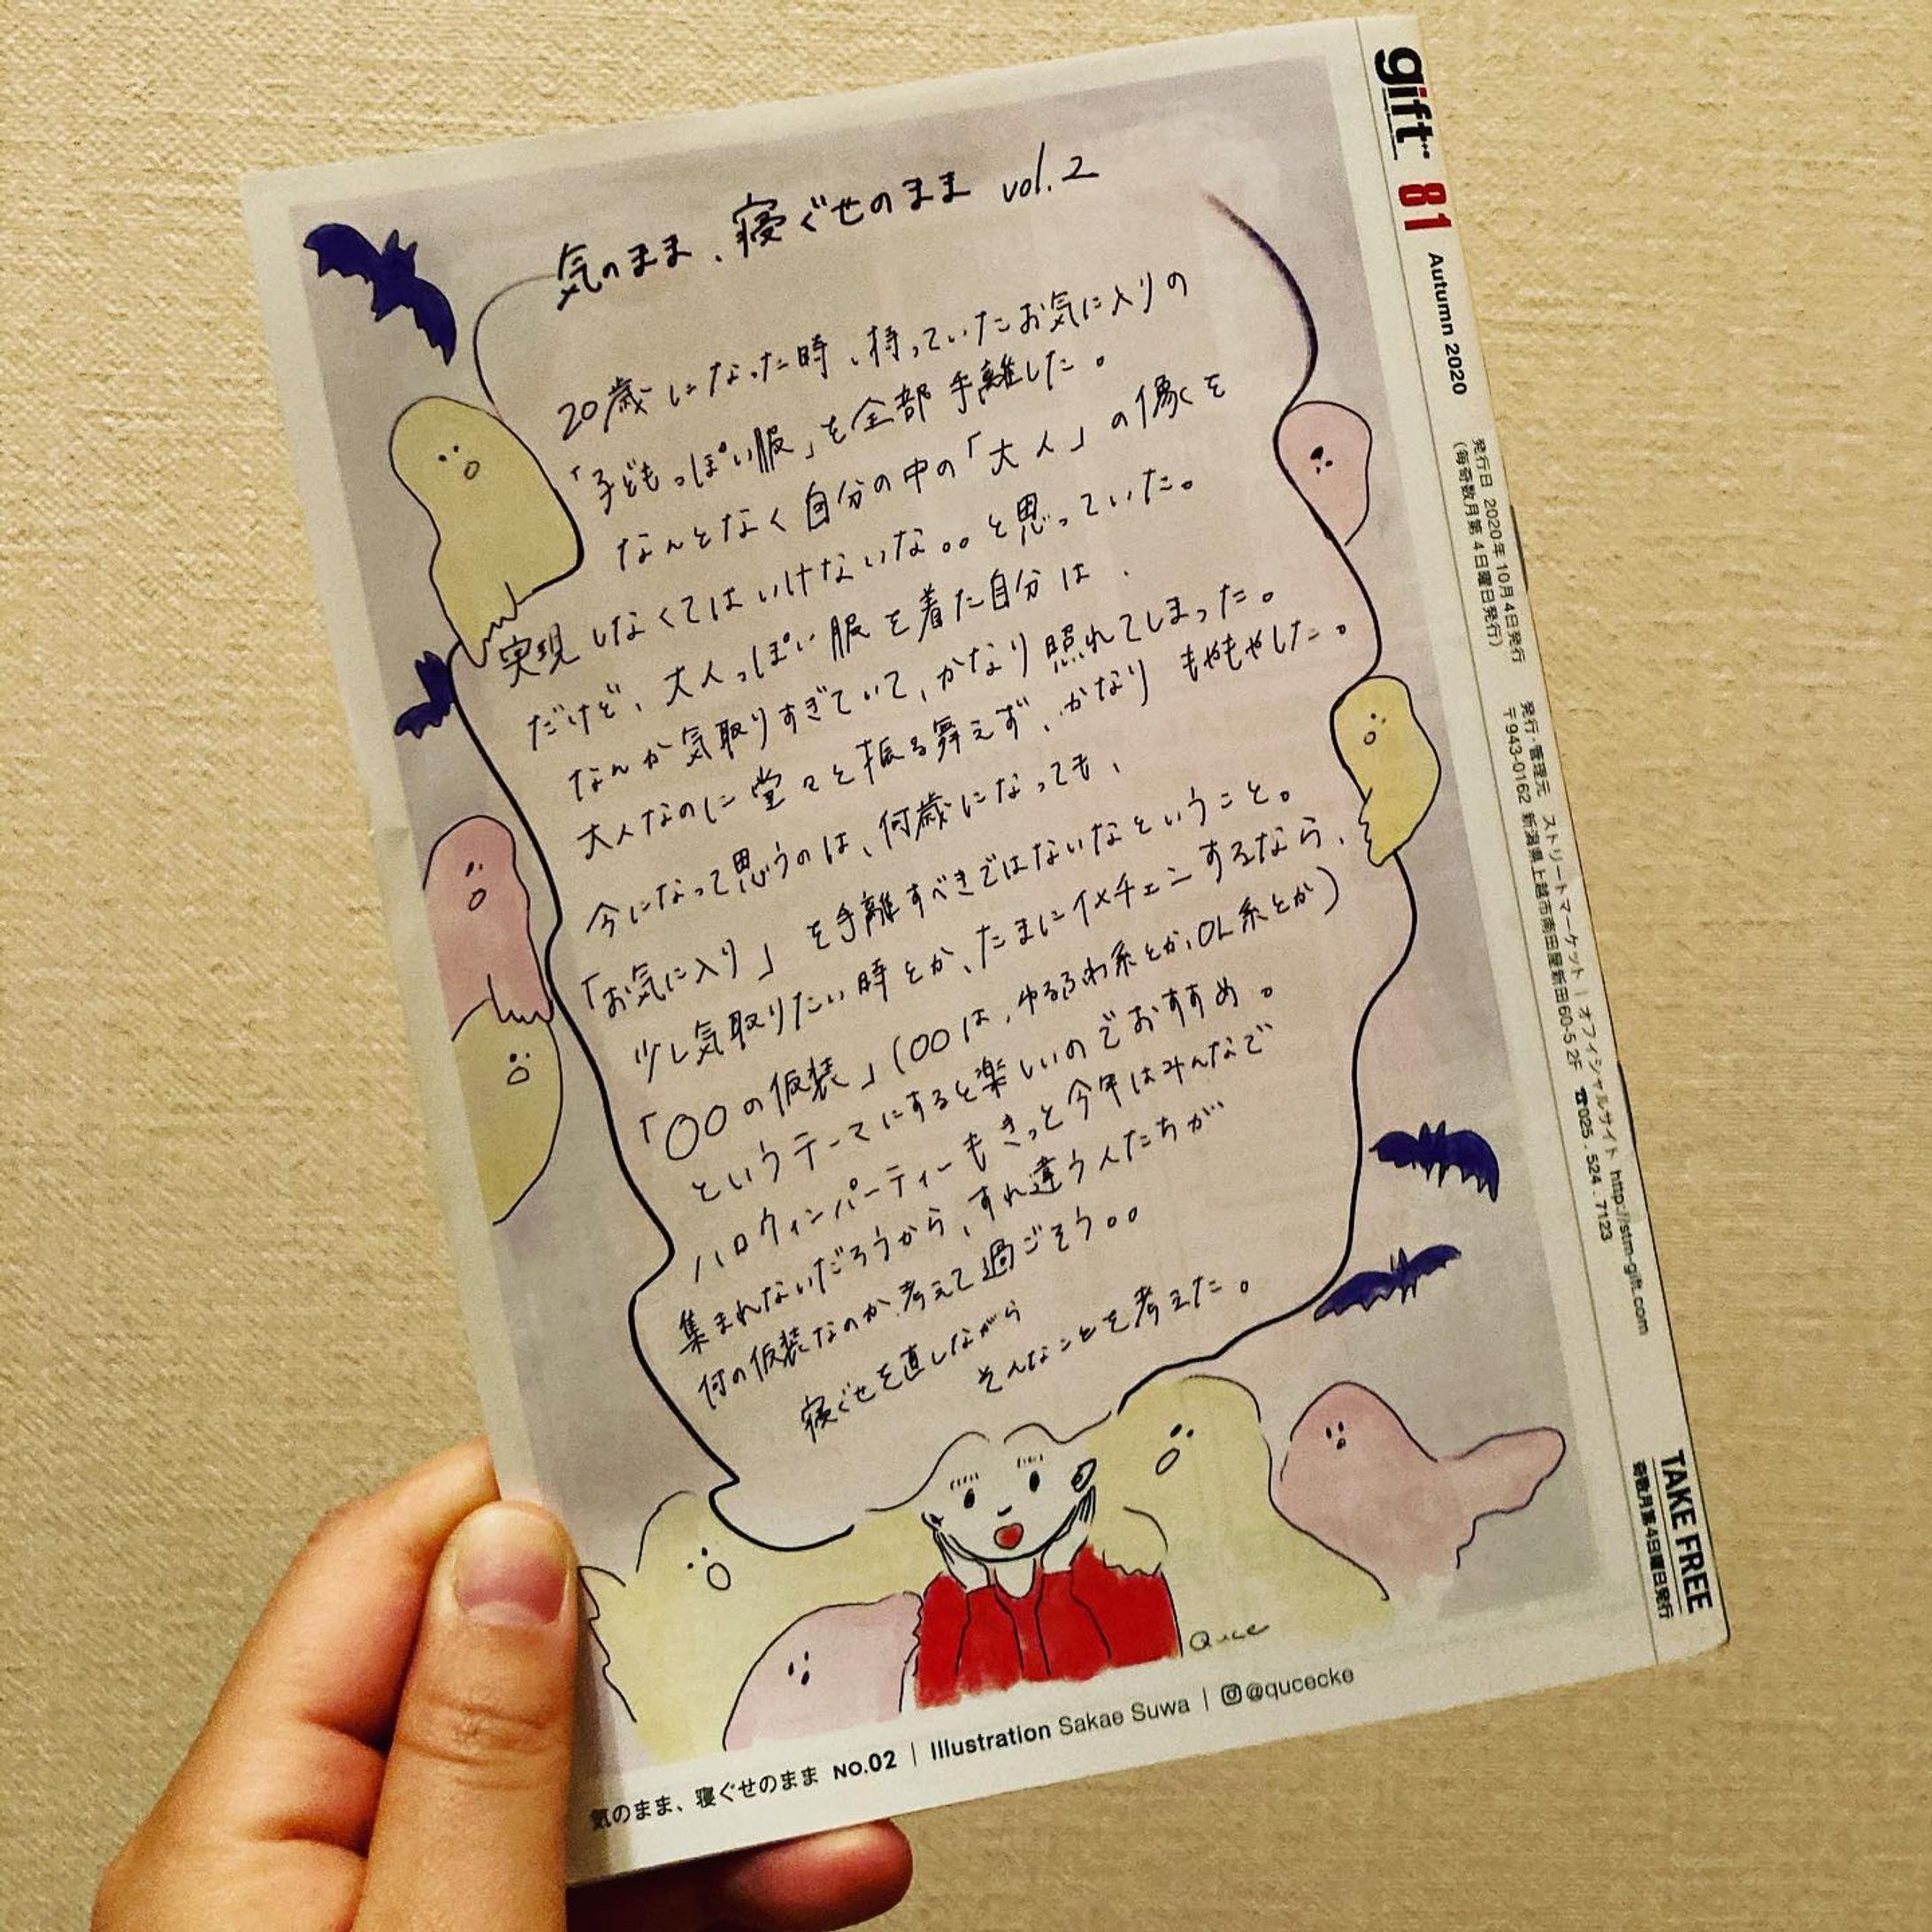 気のまま、寝ぐせのまま vol.2
20歳になった時、持っていたお気に入りの
「子どもっぽい服」を全部手離した。
なんとなく自分の中の「大人」の像を
実現しなくてはいけないな。。と思っていた。
だけど、大人っぽい服を着た自分は、
なんか気取りすぎていて、かなり照れてしまった。
大人なのに堂々と振る舞えず、かなりもやもやした。
今になって思うのは、何歳になっても、
「お気に入り」を手離すべきではないなということ。
少し気取りたい時とか、たまにイメチェンするなら、
「〇〇の仮装」(〇〇は、ゆるふわ系とか、OL系とか)
というテーマにすると楽しいのでおすすめ。
ハロウィンパーティーもきっと今年はみんなで
集まれないだろうから、すれ違う人たちが
何の仮装なのか考えて過ごそう。。
寝ぐせを直しながら
そんなことを考えた。
Quce
気のまま、寝ぐせのまま NO.02 | Illustration Sakae Suwa | @qucecke
gift 81 Autumn 2020
発行日 2020年10月4日発行
(毎奇数月第4日曜日発行)
発行・管理元 ストリートマーケット | オフィシャルサイト http://stm-gift.com
〒943-0162 新潟県上越市南田屋新田60-5 2F ☎025.524.7123
TAKE FREE
奇数月第4日曜日発行